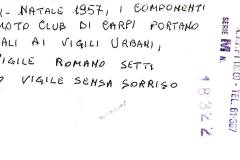 - NATALE 1957, I COMPONENTI
MOTO CLUB DI CARPI PORTANO
ALI AI VIGILI URBANI,
VIGILE ROMANO SETTI
VIGILE SENSA SORRISO
TEL. 61-567
SERIE M N.
18322